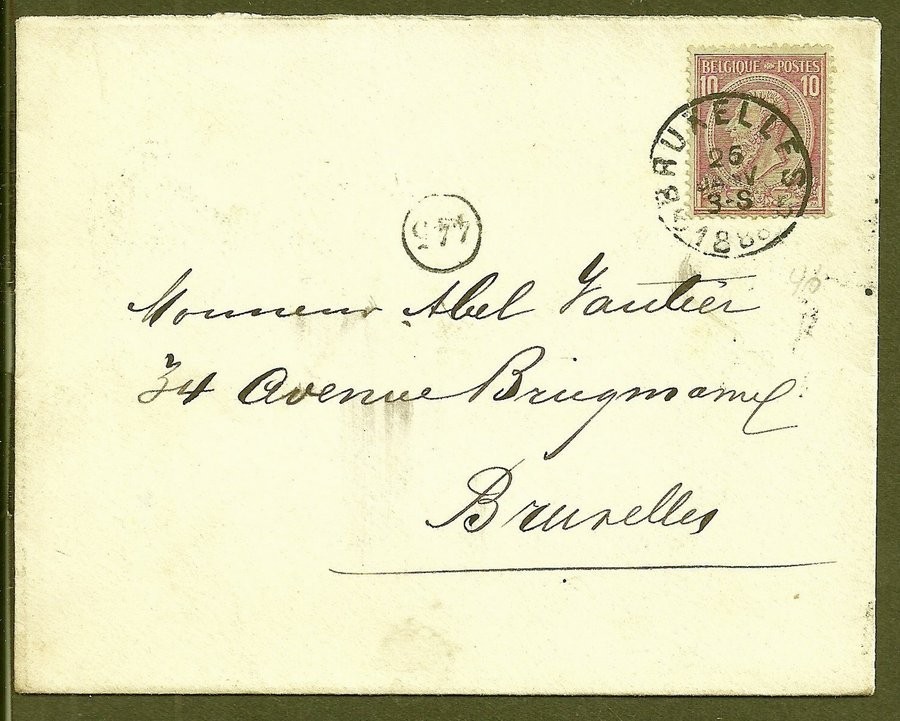 BELGIQUE POSTES
10 10
BRUXELLES
26
JANV
3-S
188
445
Monsieur Abel Vautier
34 Avenue Brugmann
Bruxelles